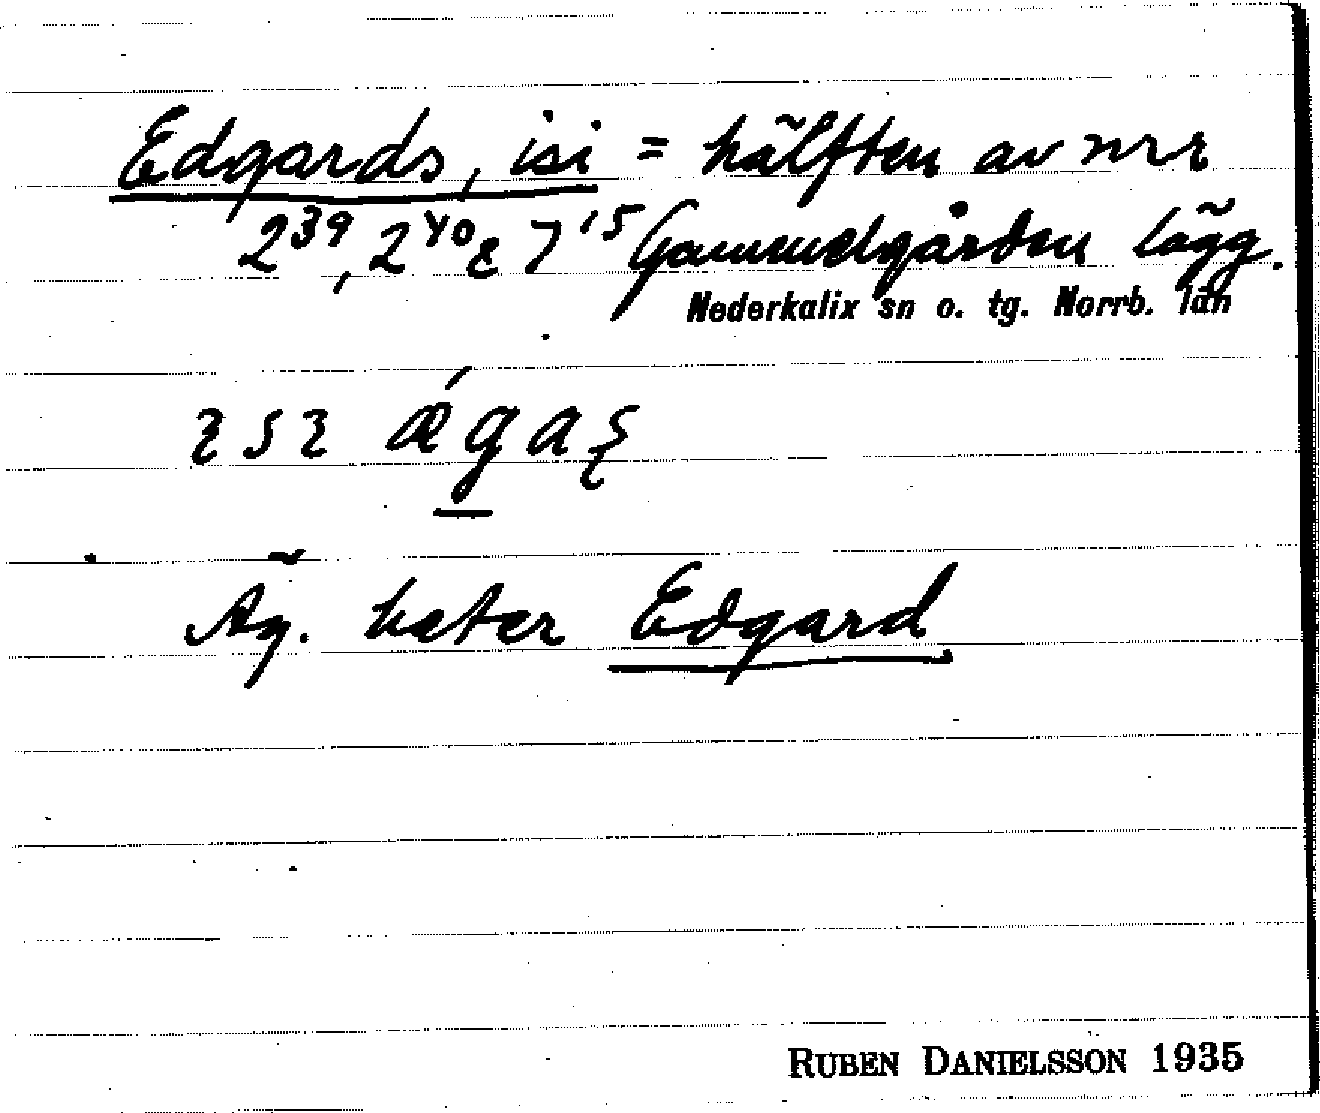 Edgards, isi = hälften av nr r
2³⁹, 2⁴⁰ & 7¹⁵ Gammelgården lägg.
Nederkalix sn o. tg. Norrb. län
ägaş
Äg. heter Edgard
RUBEN DANIELSSON 1935